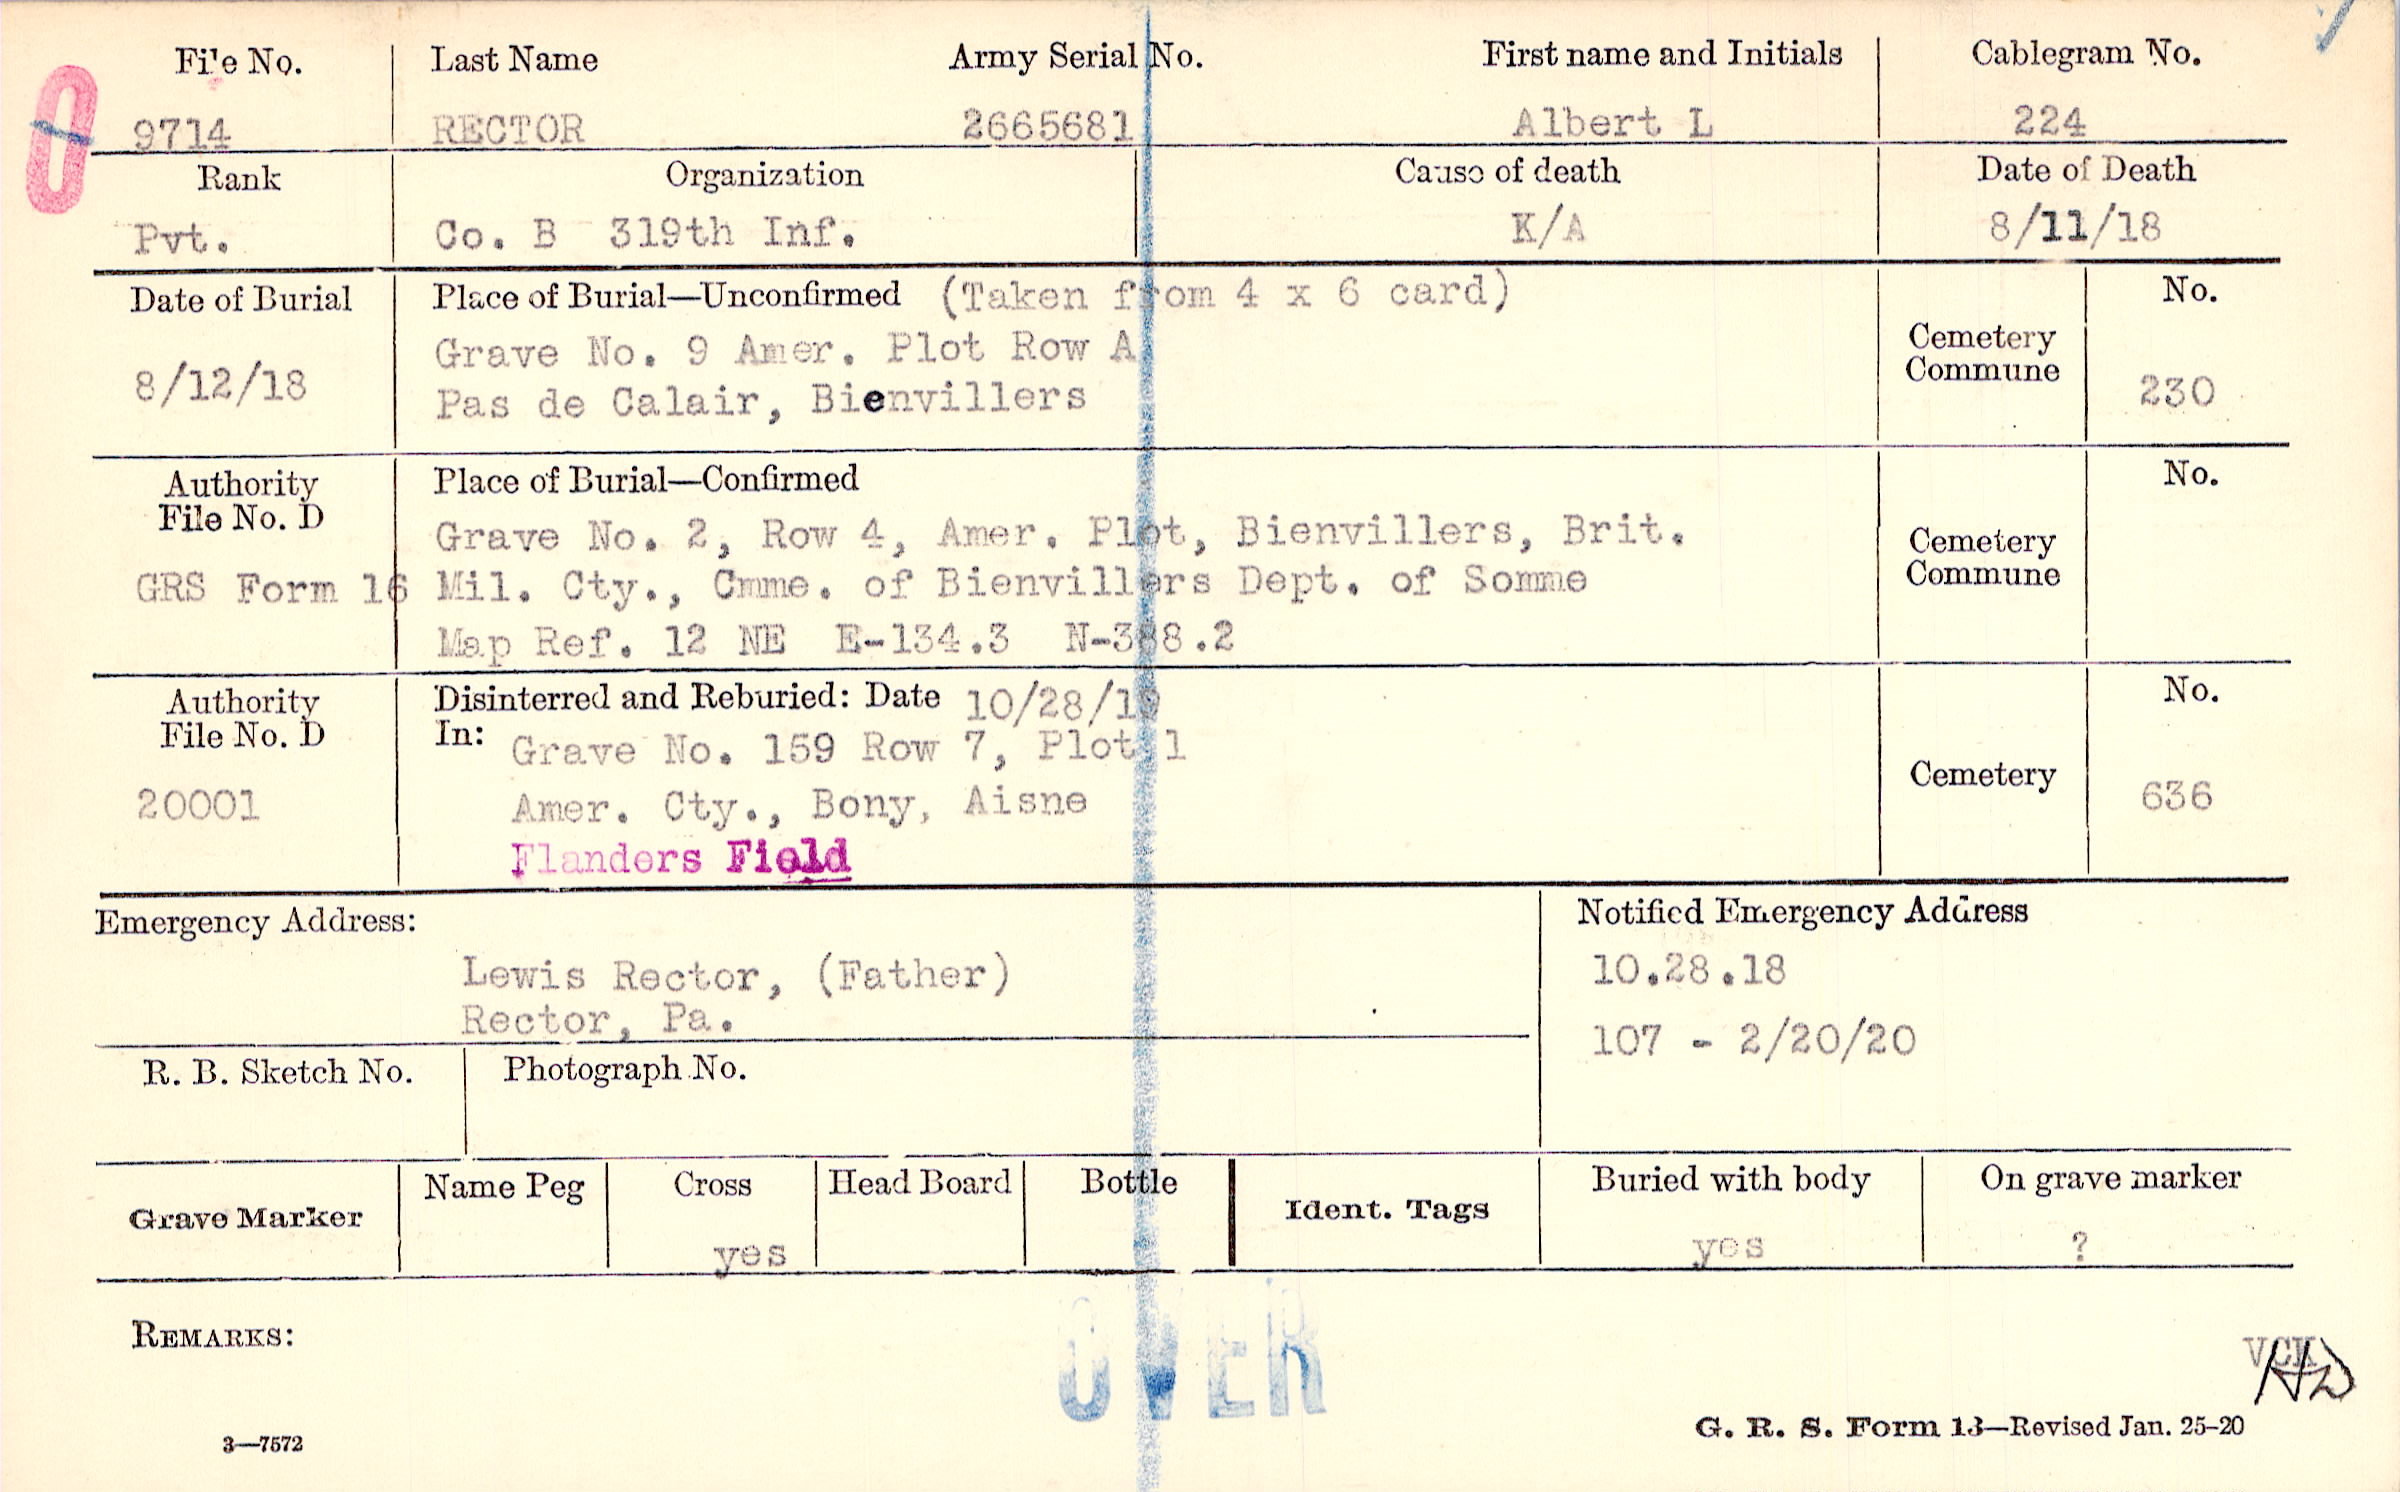 File No. Last Name Army Serial No. First name and Initials Cablegram No.
0 9714 RECTOR 2665681 Albert L 224
Rank Organization Cause of death Date of Death
Pvt. Co. B 319th Inf. K/A 8/11/18
Date of Burial Place of Burial—Unconfirmed (Taken from 4 x 6 card) No.
Grave No. 9 Amer. Plot Row A Cemetery
8/12/18 Pas de Calair, Bienvillers Commune 230
Authority Place of Burial—Confirmed No.
File No. D Grave No. 2, Row 4, Amer. Plot, Bienvillers, Brit. Cemetery
GRS Form 16 Mil. Cty., Cmme. of Bienvillers Dept. of Somme Commune
Map Ref. 12 NE E-134.3 N-388.2
Authority Disinterred and Reburied: Date 10/28/19 No.
File No. D In: Grave No. 159 Row 7, Plot 1 Cemetery
20001 Amer. Cty., Bony, Aisne 636
Flanders Field
Emergency Address: Notified Emergency Address
Lewis Rector, (Father) 10.28.18
Rector, Pa. 107 - 2/20/20
R. B. Sketch No. Photograph No.
Grave Marker Name Peg Cross Head Board Bottle Ident. Tags Buried with body On grave marker
yes yes ?
OVER
REMARKS:
VCK
HD
3—7572 G. R. S. Form 13—Revised Jan. 25-20